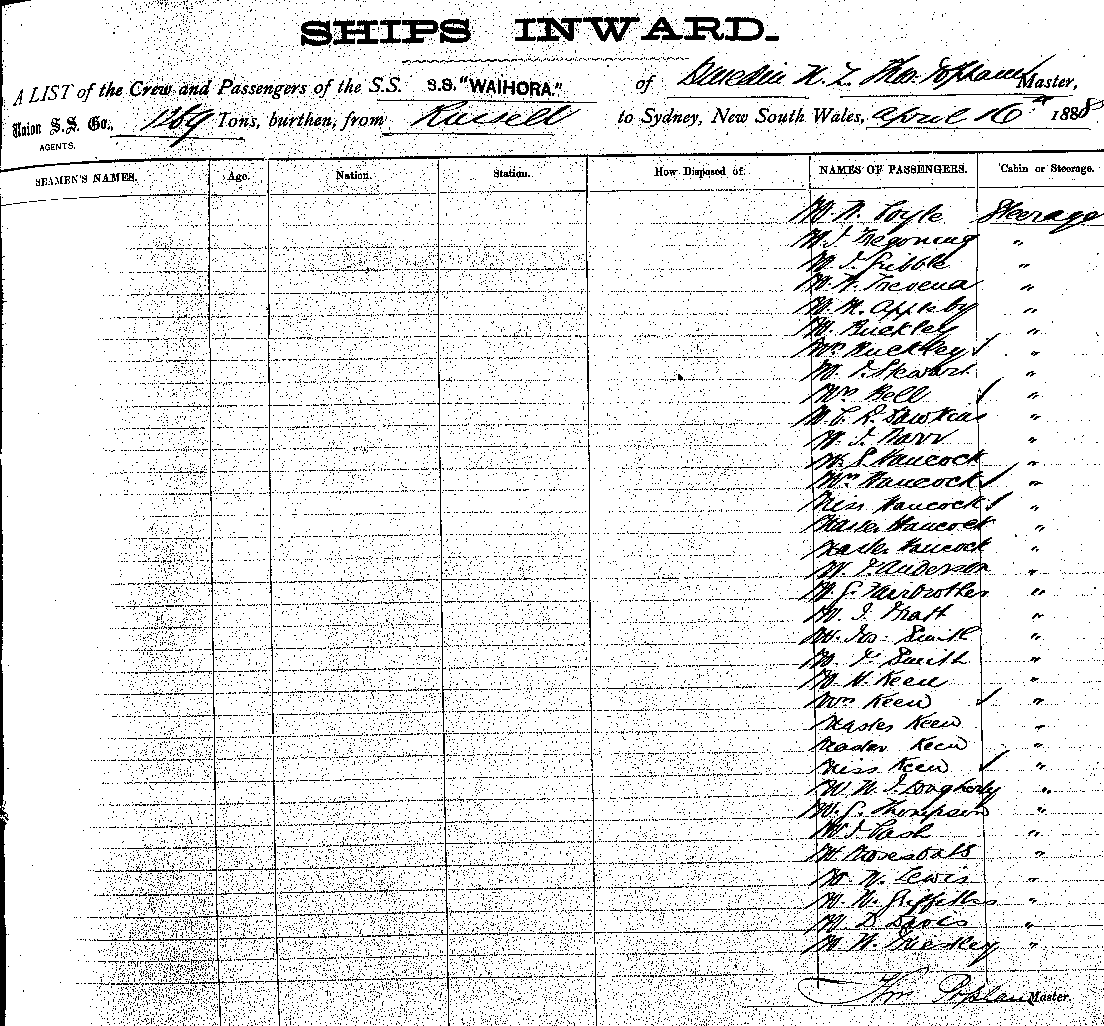 SHIPS INWARD.
A LIST of the Crew and Passengers of the S.S. S.S. "WAIHORA." of Dunedin N.Z. Thos. Popham Master,
Union S.S. Co., Tons, burthen, from Russell to Sydney, New South Wales, April 16th 1888
AGENTS.
SEAMEN'S NAMES. Age. Nation. Station. How Disposed of. NAMES OF PASSENGERS. Cabin or Steerage.
Mr W. Coyle Steerage
Mr J. Tregoning "
Mr J. Gribble "
Mr W. Trevena "
Mr M. Appleby "
Mr Buckley "
Mrs Buckley "
Mr J. Stewart "
Mrs Bell "
Mr C. R. Dawkins "
Mr J. Barr "
Mr S. Hancock "
Mrs Hancock "
Miss Hancock "
Master Hancock "
Master Hancock "
Mr J. Anderson "
Mr G. "
Mr J. Pratt "
Mr Jos. Smith "
Mr J. Smith "
Mr W. Keen "
Mrs Keen "
Master Keen "
Master Keen "
Miss Keen "
Mr W. J. Dogherty "
Mr G. Thompson "
Mr J. "
Mr "
Mr W. Lewis "
Mr W. Griffiths "
Mr D. Davis "
Mr W. "
Thos. Popham Master.